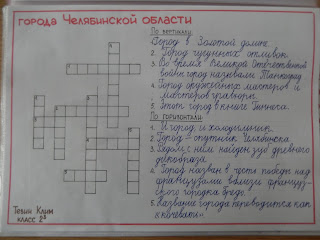 ГОРОДА ЧЕЛЯБИНСКОЙ ОБЛАСТИ
По вертикали:
Город в Золотой долине.
2. Город чугунных отливок.
3. Во время Великой Отечественной
войны город называли Танкоград
4. Город оружейных мастеров и
мастеров гравюры.
5. Этот город в книге Гиннеса.
По горизонтали:
1. И город, и холодильник.
2. Город - спутник Челябинска
3. Рядом с ним найден зуб древнего
дикобраза.
4. Город назван в честь победы над
французами вблизи француз-
ского городка
5. Название города переводится как
"кочевать".
Тезин Клим
класс 2